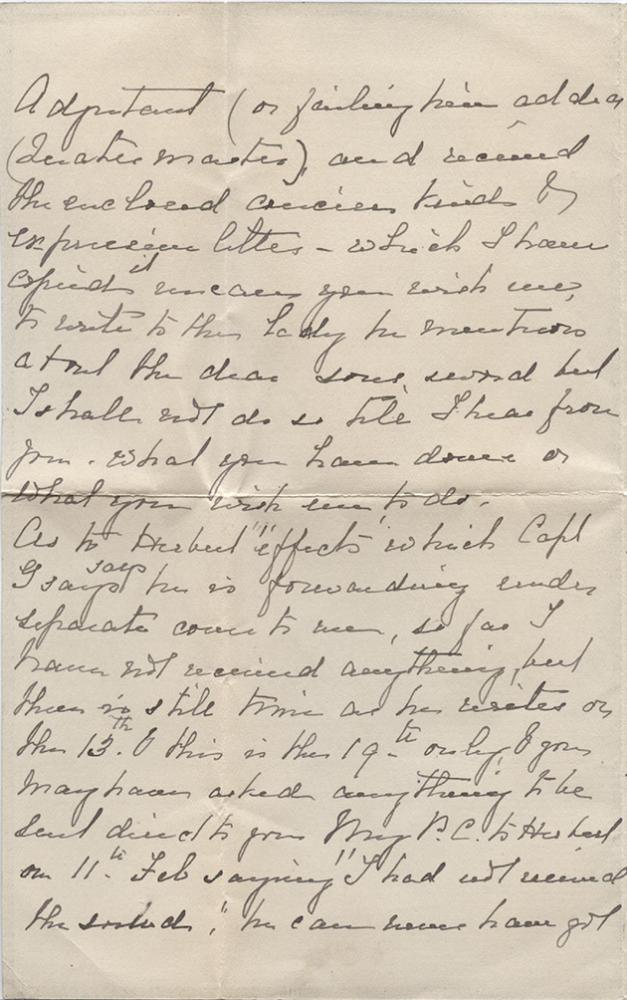 Adjutant (or failing him address
Quarter master), and received
the enclosed concise kind &
expressive letter - which I have
copied it in case you wish me,
to write to the Lady he mentions
about the dear sons sword but
I shall not do so till I hear from
you. what you have done or
what you wish me to do.
As to Herbert "effects" which Capt
G says says he is forwarding under
separate cover to me, so far I
have not received anything, but
there is still time as he writes on
the 13.th & this is the 19th only, & you
may have asked anything to be
sent direct to you My P.C. to Herbert
on 11th Feb saying "I had not received
the , " he can never have got